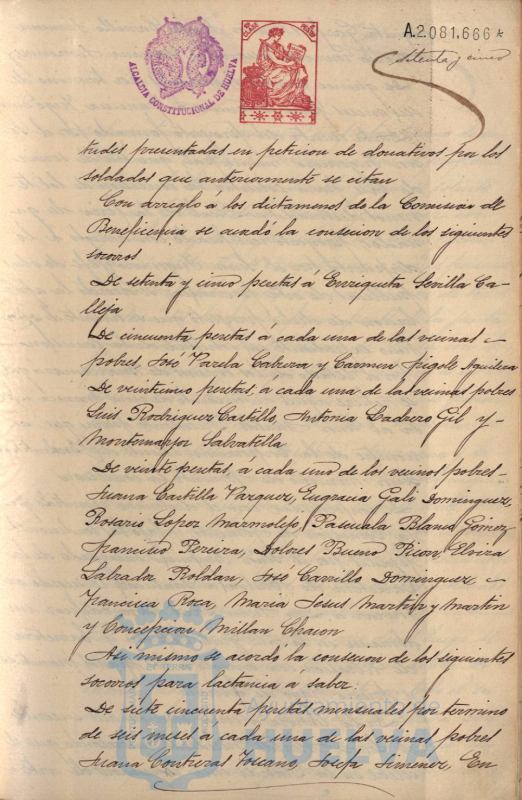 ALCALDIA CONSTITUCIONAL DE HUELVA
A.2.081.666*
setenta y cinco
tudes presentadas en peticion de donativos por los
soldados que anteriormente se citan
Con arreglo á los dictamenes de la Comision de
Beneficencia se acordó la consecion de los siguientes
socorros
De setenta y cinco pesetas á Enriqueta Sevilla Ca-
lleja
De cincuenta pesetas á cada una de las vecinas
pobres, José Varela Cabrera y Carmen Aguilera
De veinticinco pesetas á cada una de las vecinas pobres
Luis Rodriguez Castillo, Antonia Gil y
Montemayor Salvatella
De veinte pesetas, á cada uno de los vecinos pobres
Juana Castilla Vazquez, Eugracia Gali Dominguez,
Rosario Lopez Marmolejo, Pascuala Blanco Gomez
Francisco Pereira, Dolores Bueno Picon, Elvira
Labrador Roldan, José Carrillo Dominguez
Francisca Roca, Maria Jesus Martin y Martin
y Concepcion Millan Chacon
Asi mismo se acordó la consecion de los siguientes
socorros para lactancia á saber:
De siete cincuenta pesetas mensuales por termino
de seis meses á cada una de las vecinas pobres
Juana Contreras Toscano, Josefa Jimenez, En
HUELVA